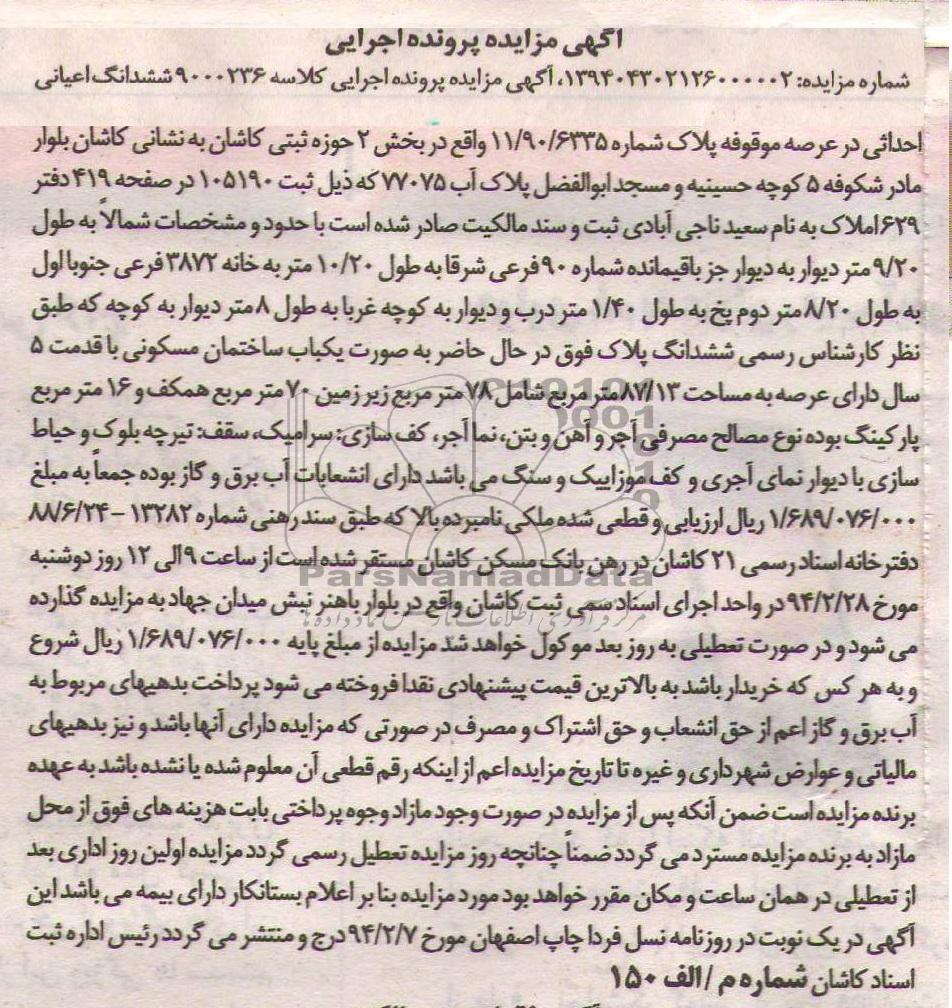 آگهی مزایده پرونده اجرایی
شماره مزایده: ۱۳۹۴۰۴۳۰۲۱۲۶۰۰۰۰۰۲، آگهی مزایده پرونده اجرایی کلاسه ۹۰۰۰۲۳۶ ششدانگ اعیانی
احداثی در عرصه موقوفه پلاک شماره ۱۱/۹۰/۶۳۳۵ واقع در بخش ۲ حوزه ثبتی کاشان به نشانی کاشان بلوار
مادر شکوفه ۵ کوچه حسینیه و مسجد ابوالفضل پلاک آب ۷۷۰۷۵ که ذیل ثبت ۱۰۵۱۹۰ در صفحه ۴۱۹ دفتر
۶۲۹ املاک به نام سعید ناجی آبادی ثبت و سند مالکیت صادر شده است با حدود و مشخصات شمالاً به طول
۹/۲۰ متر دیوار به دیوار جز باقیمانده شماره ۹۰ فرعی شرقا به طول ۱۰/۲۰ متر به خانه ۳۸۷۲ فرعی جنوبا اول
به طول ۸/۲۰ متر دوم پخ به طول ۱/۴۰ متر درب و دیوار به کوچه غربا به طول ۸ متر دیوار به کوچه که طبق
نظر کارشناس رسمی ششدانگ پلاک فوق در حال حاضر به صورت یکباب ساختمان مسکونی با قدمت ۵
سال دارای عرصه به مساحت ۸۷/۱۳ متر مربع شامل ۷۸ متر مربع زیر زمین ۷۰ متر مربع همکف و ۱۶ متر مربع
پارکینگ بوده نوع مصالح مصرفی آجر و آهن و بتن، نما آجر، کف سازی: سرامیک، سقف: تیرچه بلوک و حیاط
سازی با دیوار نمای آجری و کف موزاییک و سنگ می باشد دارای انشعابات آب برق و گاز بوده جمعاً به مبلغ
۱/۶۸۹/۰۷۶/۰۰۰ ریال ارزیابی و قطعی شده ملکی نامبرده بالا که طبق سند رهنی شماره ۱۳۲۸۲ – ۸۸/۶/۲۴
دفترخانه اسناد رسمی ۲۱ کاشان در رهن بانک مسکن کاشان مستقر شده است از ساعت ۹ الی ۱۲ روز دوشنبه
ParsNamadData
مورخ ۹۴/۲/۲۸ در واحد اجرای اسناد سمی ثبت کاشان واقع در بلوار باهنر نبش میدان جهاد به مزایده گذارده
می شود و در صورت تعطیلی به روز بعد موکول خواهد شد مزایده از مبلغ پایه ۱/۶۸۹/۰۷۶/۰۰۰ ریال شروع
و به هر کس که خریدار باشد به بالاترین قیمت پیشنهادی نقدا فروخته می شود پرداخت بدهیهای مربوط به
آب برق و گاز اعم از حق انشعاب و حق اشتراک و مصرف در صورتی که مزایده دارای آنها باشد و نیز بدهیهای
مالیاتی و عوارض شهرداری و غیره تا تاریخ مزایده اعم از اینکه رقم قطعی آن معلوم شده یا نشده باشد به عهده
برنده مزایده است ضمن آنکه پس از مزایده در صورت وجود مازاد وجوه پرداختی بابت هزینه های فوق از محل
مازاد به برنده مزایده مسترد می گردد ضمناً چنانچه روز مزایده تعطیل رسمی گردد مزایده اولین روز اداری بعد
از تعطیلی در همان ساعت و مکان مقرر خواهد بود مورد مزایده بنا بر اعلام بستانکار دارای بیمه می باشد این
آگهی در یک نوبت در روزنامه نسل فردا چاپ اصفهان مورخ ۹۴/۲/۷ درج و منتشر می گردد رئیس اداره ثبت
اسناد کاشان شماره م / الف ۱۵۰